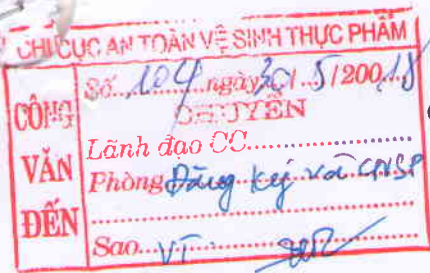 CHI CỤC AN TOÀN VỆ SINH THỰC PHẨM
CÔNG VĂN ĐẾN
Số...104...ngày 30/..5/200.18
CHUYỂN
Lãnh đạo CC
Phòng Đăng ký và CNSP
Sao...VT